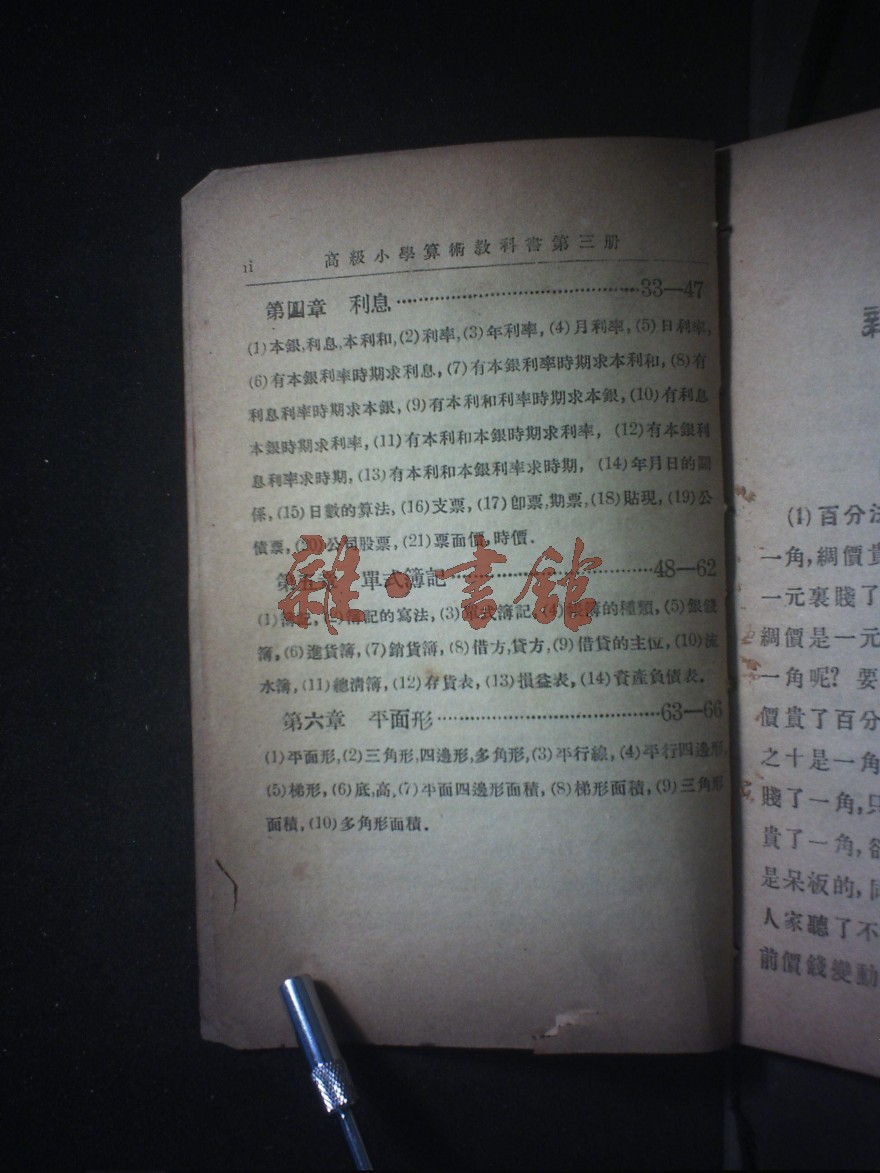 ii 高級小學算術敎科書第三册
第四章 利息…………………………33—47
(1)本銀,利息,本利和,(2)利率,(3)年利率,(4)月利率,(5)日利率,
(6)有本銀利率時期求利息,(7)有本銀利率時期求本利和,(8)有
利息利率時期求本銀,(9)有本利和利率時期求本銀,(10)有利息
本銀時期求利率,(11)有本利和本銀時期求利率, (12)有本銀利
息利率求時期,(13)有本利和本銀利率求時期, (14)年月日的關
係,(15)日數的算法,(16)支票,(17)卽票,期票,(18)貼現,(19)公
債票,(20)公司股票,(21)票面價,時價.
第五章 單式簿記…………………………48—62
(1)簿記,(2)簿記的寫法,(3)單式簿記,(4)帳簿的種類,(5)銀錢
簿,(6)進貨簿,(7)銷貨簿,(8)借方,貸方,(9)借貸的主位,(10)流
水簿,(11)總淸簿,(12)存貨表,(13)損益表,(14)資產負債表.
第六章 平面形…………………………63—66
(1)平面形,(2)三角形,四邊形,多角形,(3)平行線,(4)平行四邊形,
(5)梯形,(6)底,高,(7)平面四邊形面積,(8)梯形面積,(9)三角形
面積,(10)多角形面積.
雜·書館
(1)百分法
一角,綢價貴
一元裏賤了
綢價是一元
一角呢?要
價貴了百分
之十是一角
賤了一角,只
貴了一角,卻
是呆板的,同
人家聽了不
前價錢變動